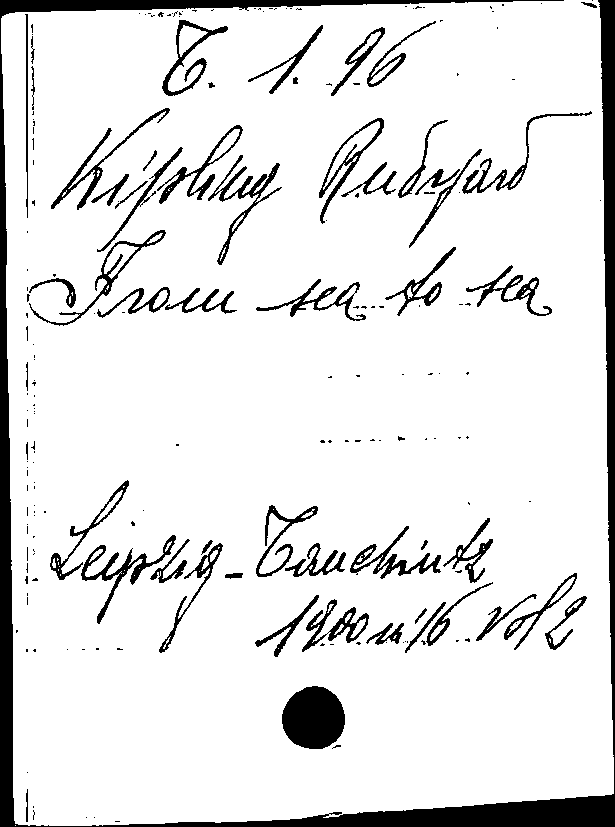 T. 1. 96
Kipling Rudyard
From sea to sea
Leipzig - Tauchnitz
1900 in 16 vol 2